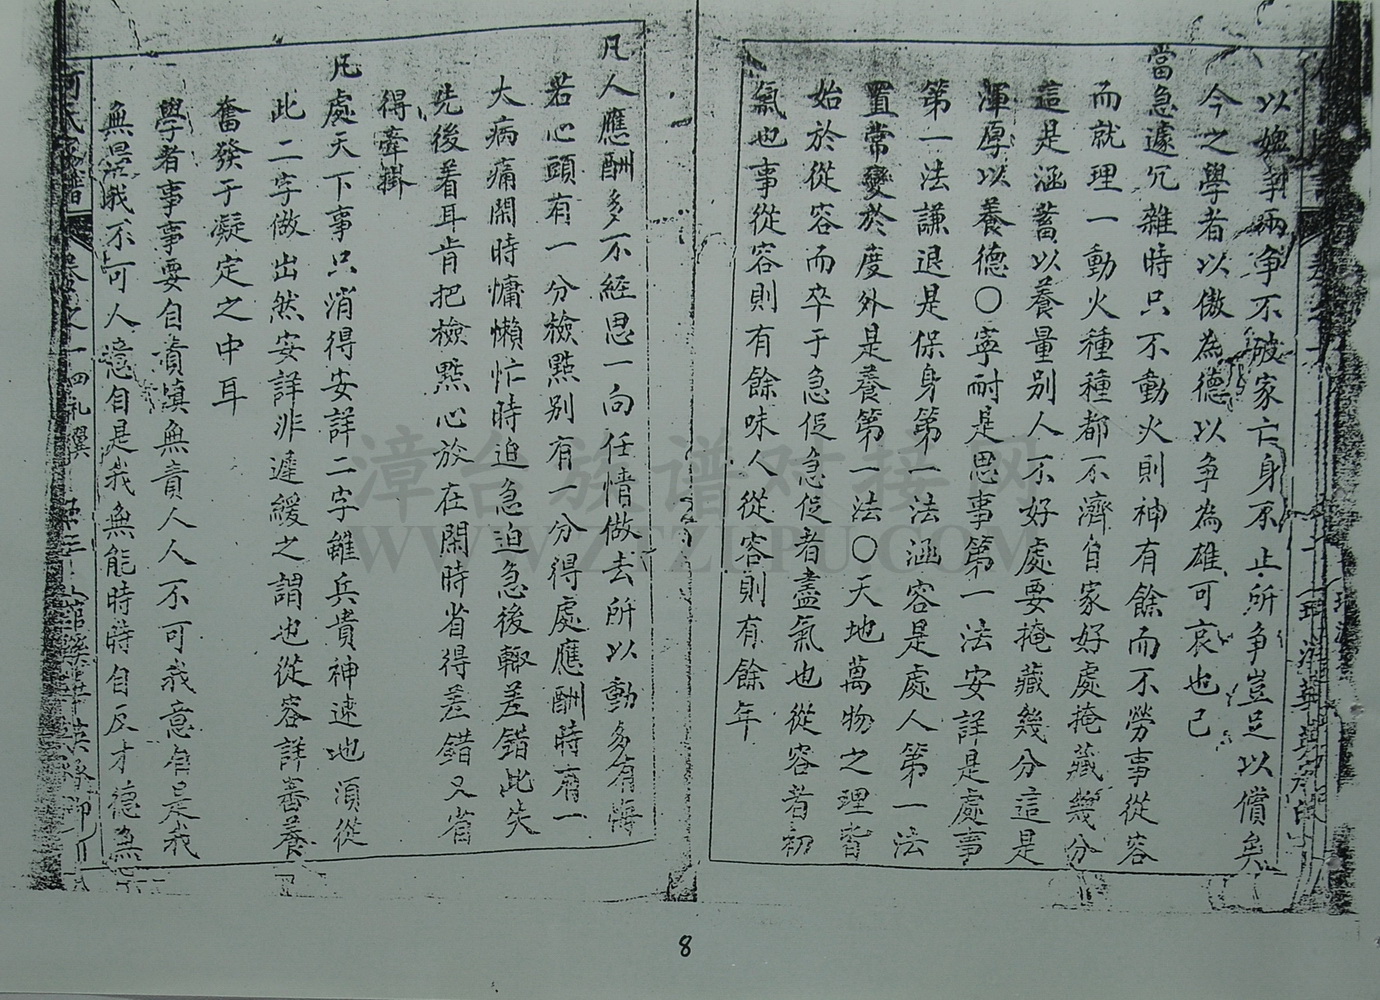 以嫓爭兩爭不破家亡身不止所爭豈足以償矣
今之學者以傲為德以爭為雄可哀也已
當急遽冗雜時只不動火則神有餘而不勞事從容
而就理一動火種種都不濟自家好處掩藏幾分
這是涵蓄以養量別人不好處要掩藏幾分這是
渾厚以養德〇寧耐是思事第一法安詳是處事
第一法謙退是保身第一法涵容是處人第一法
置常變於度外是養第一法〇天地萬物之理皆
始於從容而卒于急促急促者盡氣也從容者初
氣也事從容則有餘味人從容則有餘年
凡人應酬多不經思一向任情做去所以動多有悔
若心頭有一分檢點別有一分得處應酬時有一
大病痛閑時慵懶忙時迫急迫急後輙差錯此失
先後着耳肯把檢點心放在閑時省得差錯又省
得牽掛
凡處天下事只消得安詳二字雖兵貴神速也須從
此二字做出然安詳非遲緩之謂也從容詳審養
奮發于凝定之中耳
學者事事要自責慎無責人人不可我意自是我
無㫮我不可人意自是我無能時時自反才德無
漳台族谱对接网
WWW.ZTZUPU.COM
8